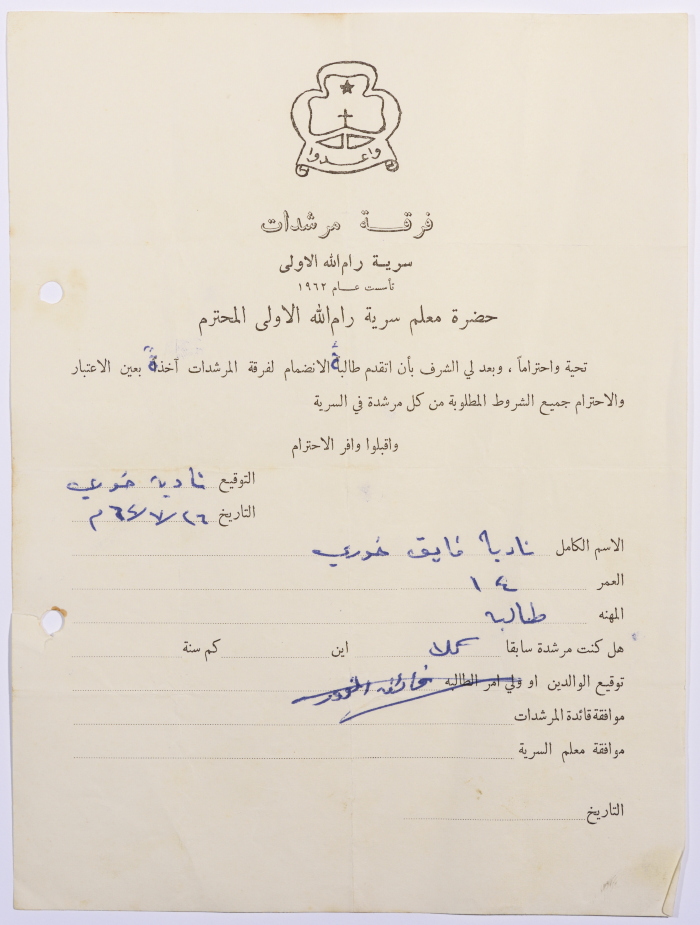 واعدوا
فرقة مرشدات
سرية رام الله الاولى
تأسست عام ١٩٦٢
حضرة معلم سرية رام الله الاولى المحترم
تحية واحتراماً ، وبعد لي الشرف بأن اتقدم طالبة الانضمام لفرقة المرشدات آخذة بعين الاعتبار
والاحترام جميع الشروط المطلوبة من كل مرشدة في السرية
واقبلوا وافر الاحترام
التوقيع نادية خوري
التاريخ ٢٦/٧/٦٤ م
الاسم الكامل نادية فايق خوري
العمر ١٤
المهنه طالبة
هل كنت مرشدة سابقا كلا اين كم سنة
توقيع الوالدين او ولي امر الطالبه
موافقة قائدة المرشدات
موافقة معلم السرية
التاريخ